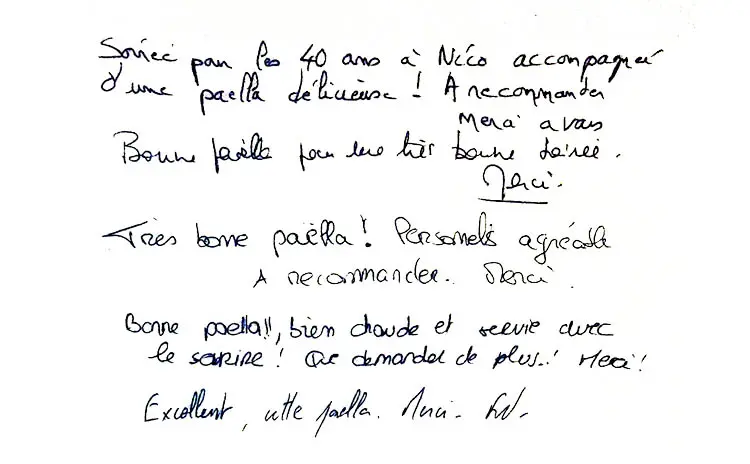 Soirée pour les 40 ans à Nico accompagné
d'une paella délicieuse ! A recommander
Merci a vous
Bonne paëlla pour une très bonne soirée.
Merci.
Très bonne paëlla ! Personels agréable
A recommander. Merci.
Bonne paella!!, bien chaude et servie avec
le sourire ! Que demander de plus..! Merci!
Excellent, cette paella. Merci.